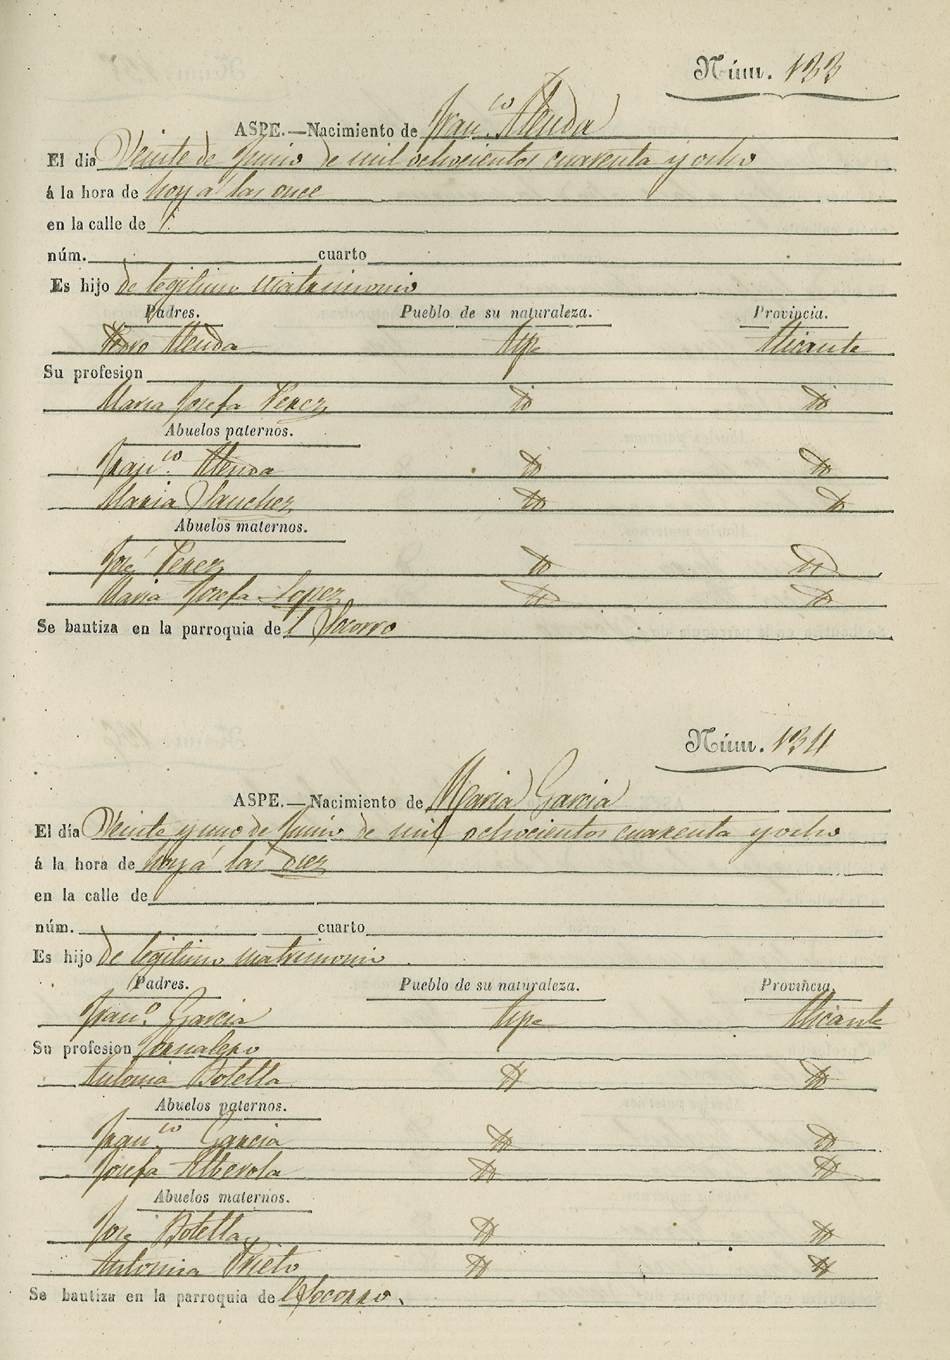 Núm. 133
ASPE.—Nacimiento de Fran.co Alenda
El dia Veinte de Junio de mil ochocientos cuarenta y ocho
á la hora de hoy a las once
en la calle de
núm. cuarto
Es hijo de legitimo matrimonio
Padres. Pueblo de su naturaleza. Provincia.
Alenda Aspe Alicante
Su profesion
Maria Josefa Perez
Abuelos paternos.
Fran.co Alenda
Maria Sanchez
Abuelos maternos.
José Perez
Maria Josefa Lopez
Se bautiza en la parroquia de l Socorro
Núm. 134
ASPE.—Nacimiento de Maria Garcia
El día Veinte y uno de Junio de mil ochocientos cuarenta y ocho
á la hora de hoy á las diez
en la calle de
núm. cuarto
Es hijo de legitimo matrimonio
Padres. Pueblo de su naturaleza. Provincia.
Fran.o Garcia Aspe Alicante
Su profesion Jornalero
Antonia Botella
Abuelos paternos.
Fran.co Garcia
Josefa Alberola
Abuelos maternos.
Jose Botella
Antonia Prieto
Se bautiza en la parroquia de l Socorro